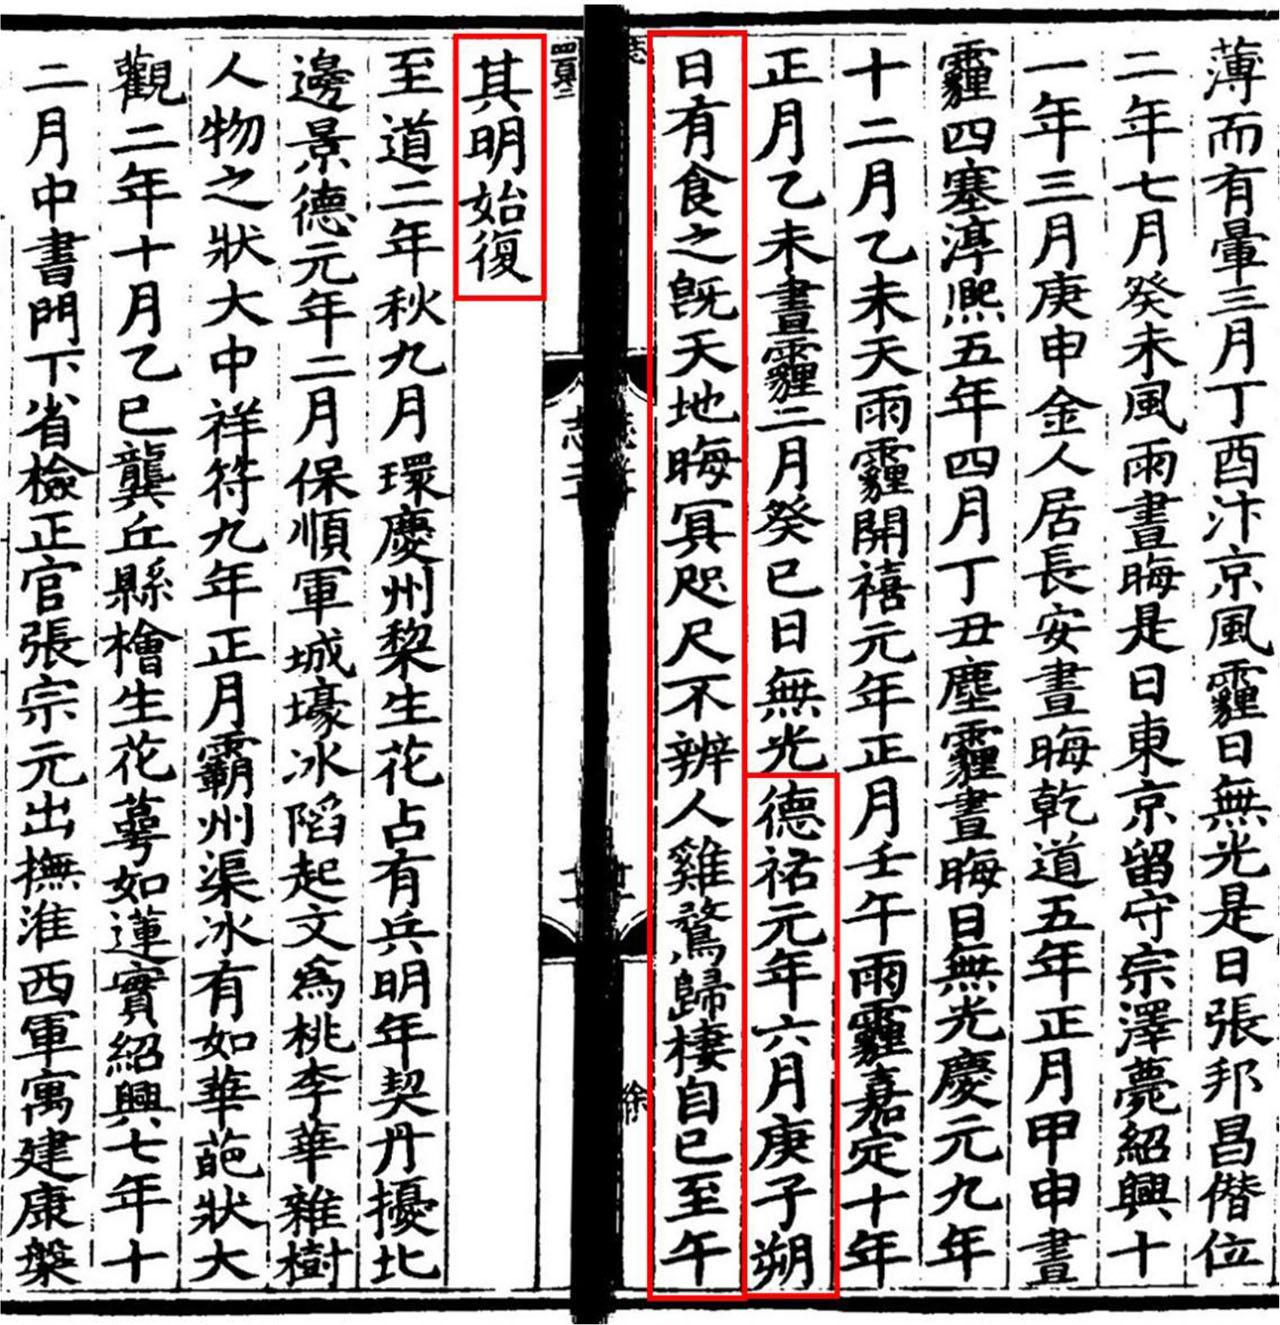 薄而有暈三月丁酉汴京風霾日無光是日張邦昌僭位
二年七月癸未風雨晝晦是日東京留守宗澤薨紹興十
一年三月庚申金人居長安晝晦乾道五年正月甲申晝
霾四塞淳熙五年四月丁丑塵霾晝晦日無光慶元九年
十二月乙未天雨霾開禧元年正月壬午雨霾嘉定十年
正月乙未晝霾二月癸巳日無光德祐元年六月庚子朔
日有食之旣天地晦冥咫尺不辨人雞鶩歸棲自巳至午
其明始復
至道二年秋九月環慶州棃生花占有兵明年契丹擾北
邊景德元年二月保順軍城壕冰陷起文為桃李華雜樹
人物之狀大中祥符九年正月霸州渠冰有如華葩狀大
觀二年十月乙巳龔丘縣檜生花蕚如蓮實紹興七年十
二月中書門下省檢正官張宗元出撫淮西軍寓建康槃
徐